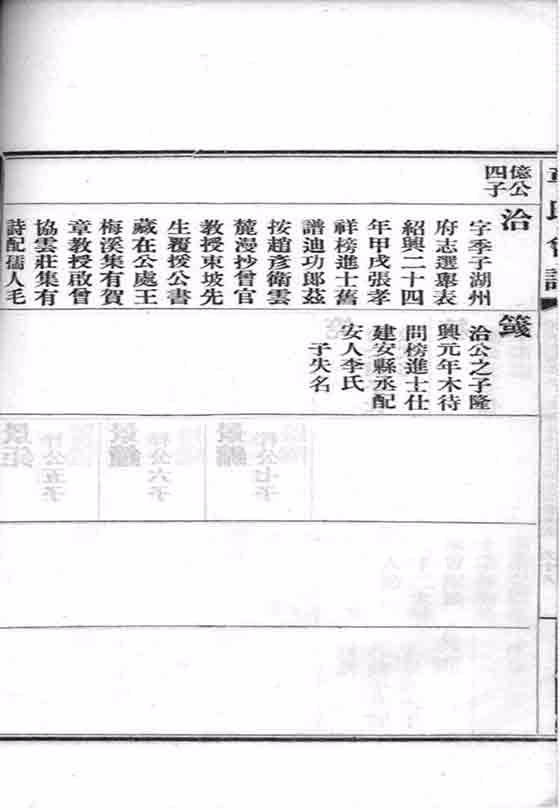 億公
四子
洽
字季子湖州
府志選舉表
紹興二十四
年甲戌張孝
祥榜進士舊
譜迪功郎茲
按趙彥衛雲
麓漫抄曾官
教授東坡先
生覆援公書
藏在公處王
梅溪集有賀
章教授啟曾
協雲莊集有
詩配孺人毛
箋
洽公之子隆
興元年木待
問榜進士仕
建安縣丞配
安人李氏
子失名